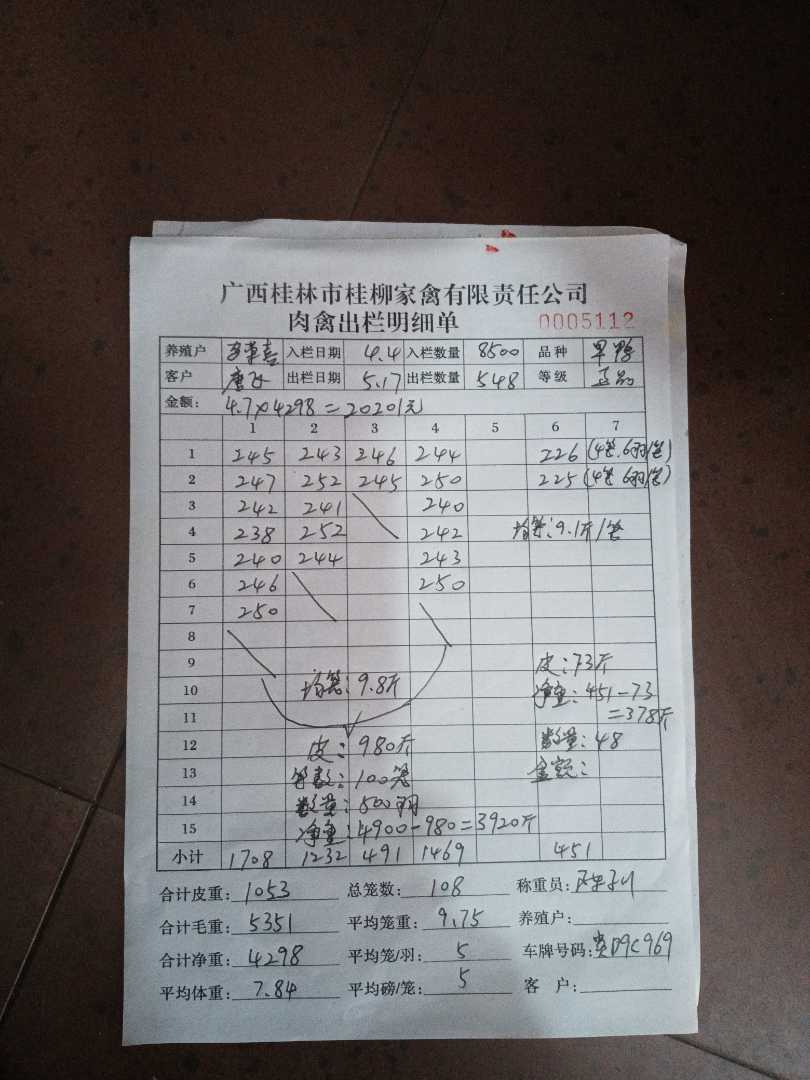 广西桂林市桂柳家禽有限责任公司
肉禽出栏明细单 0005112
养殖户 入栏日期 4.4 入栏数量 8500 品种 旱鸭
客户 唐飞 出栏日期 5.17 出栏数量 548 等级 正品
金额: 4.7×4298=20201元
1 2 3 4 5 6 7
1 245 243 246 244 226 (4笼.6羽/笼)
2 247 252 245 250 225 (4笼 6羽/笼)
3 242 241 240
4 238 252 242 均笼:9.1斤/笼
5 240 244 243
6 246 250
7 250
8
9 皮:73斤
10 均笼:9.8斤 净重:451-73
11 =378斤
12 皮:980斤 数量:48
13 笼数:100笼 金额:
14 数量:500羽
15 净重:4900-980=3920斤
小计 1708 1232 491 1469 451
合计皮重: 1053 总笼数: 108 称重员:
合计毛重: 5351 平均笼重: 9.75 养殖户:
合计净重: 4298 平均笼/羽: 5 车牌号码: 贵D9C969
平均体重: 7.84 平均磅/笼: 5 客 户: